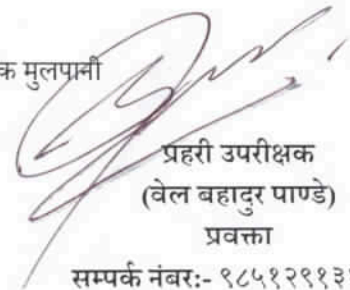 क मुलपानी
प्रहरी उपरीक्षक
(वेल बहादुर पाण्डे)
प्रवक्ता
सम्पर्क नंबर:- ९८५१२९१३